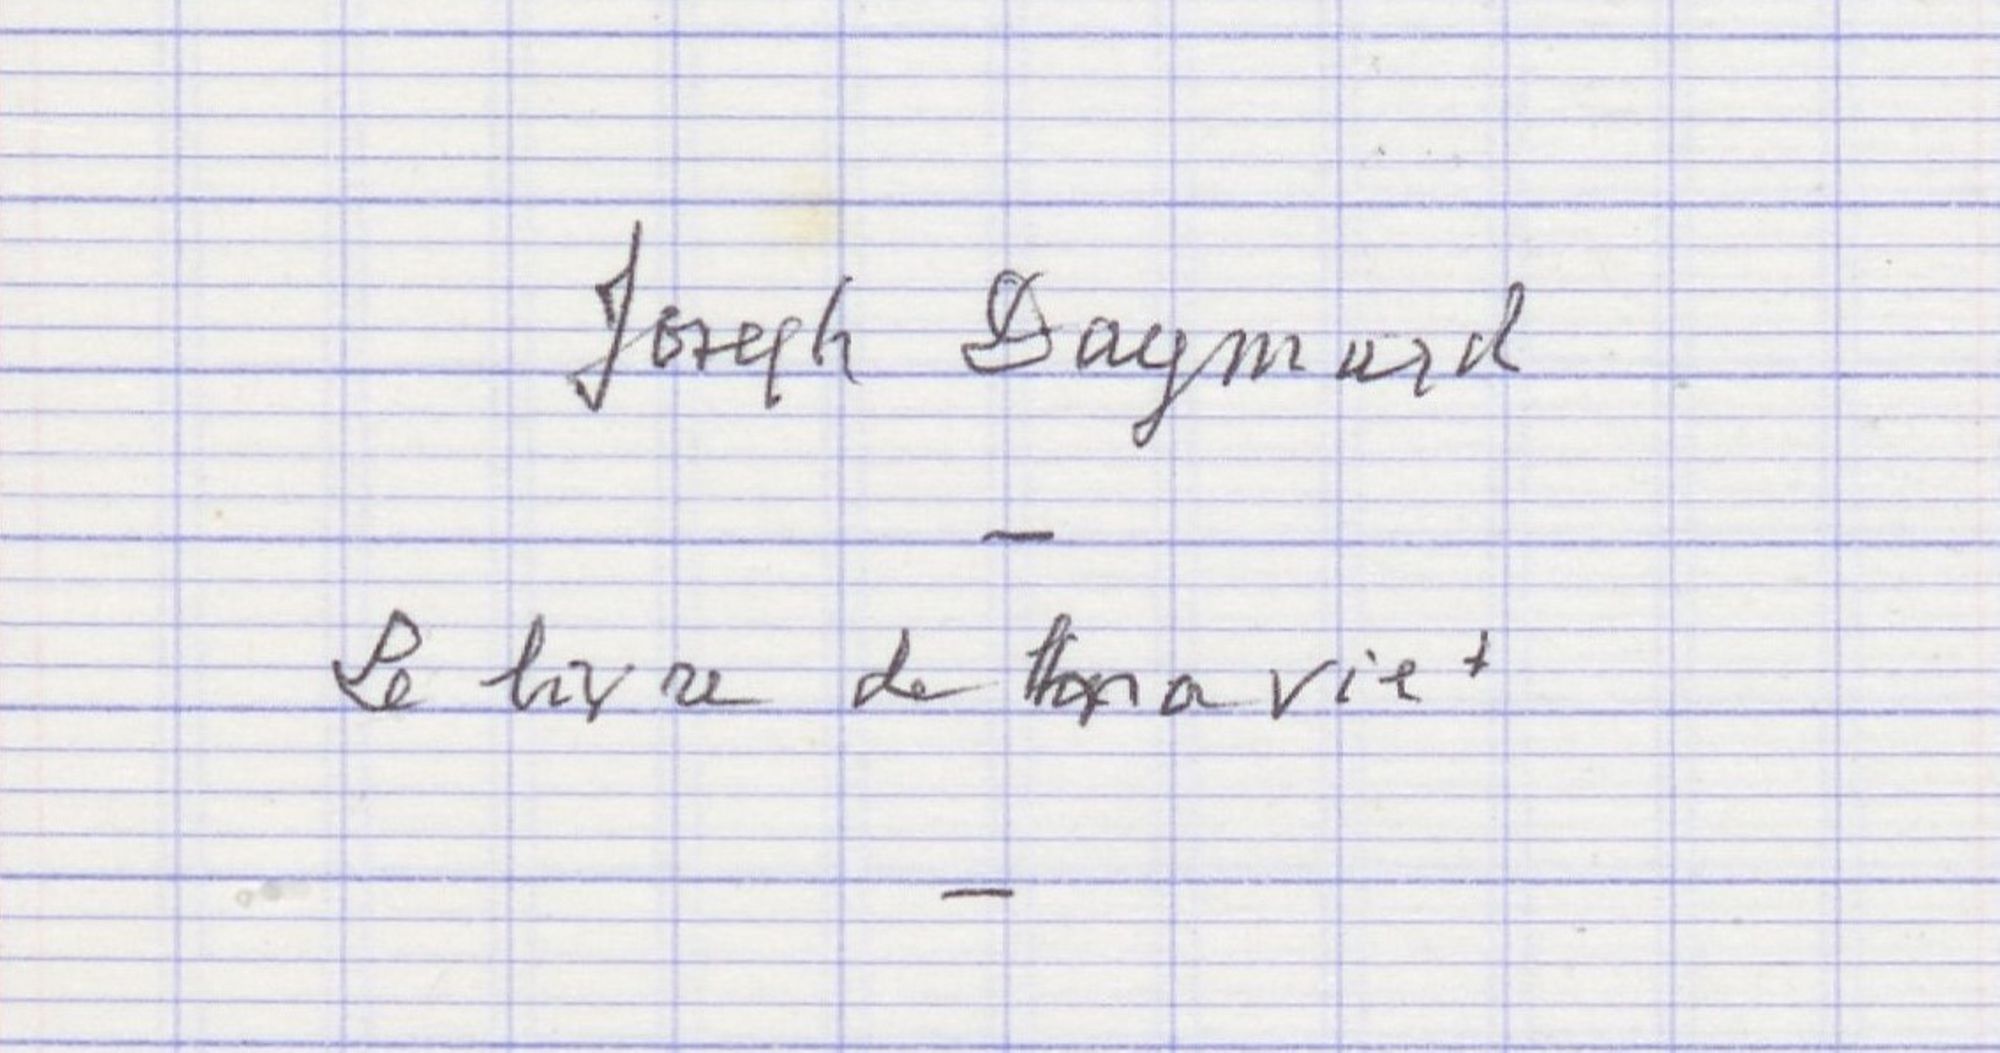 Joseph Daymard
—
Le livre de ma vie +
—